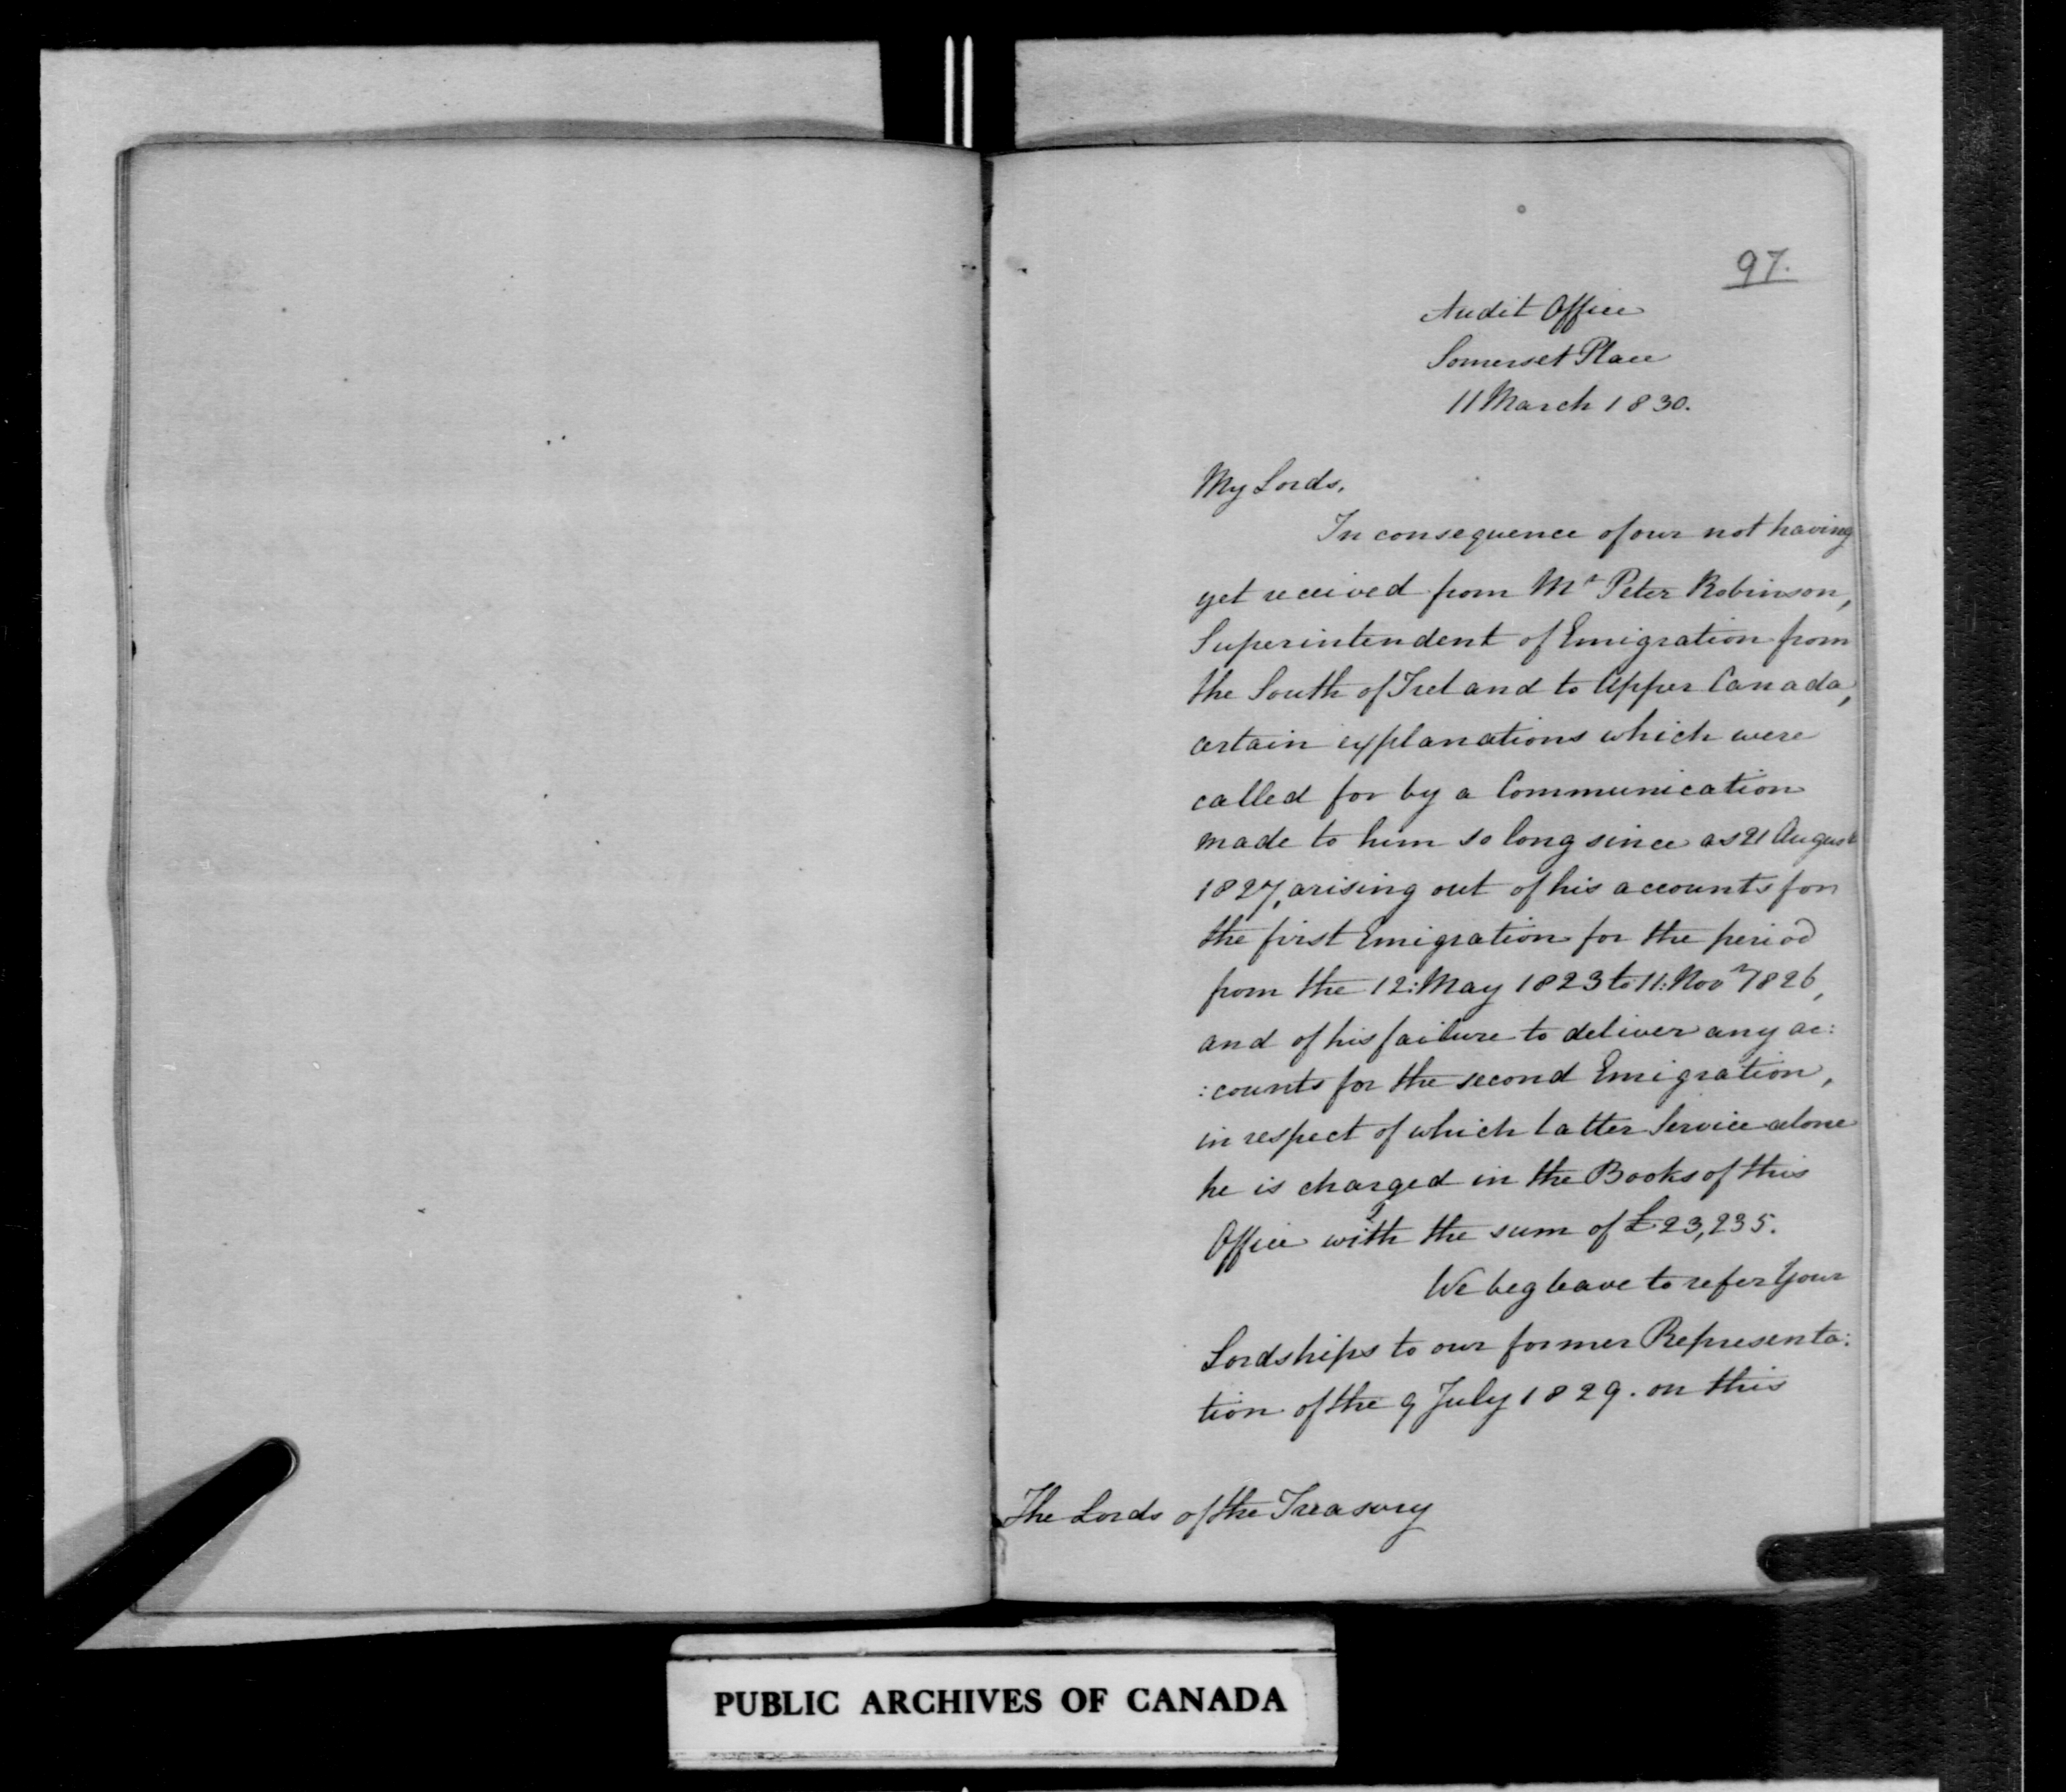 97.
Audit Office
Somerset Place
11 March 1830.
My Lords,
In consequence of our not having
yet received from Mr Peter Robinson,
Superintendent of Emigration from
the South of Ireland to Upper Canada,
certain explanations which were
called for by a Communication
made to him so long since as 21 August
1827, arising out of his accounts for
the first Emigration for the period
from the 12: May 1823 to 11: Novr 1826,
and of his failure to deliver any ac:
:counts for the second Emigration,
in respect of which latter Service alone
he is charged in the Books of this
Office with the sum of £23,235.
We beg leave to refer Your
Lordships to our former Representa:
tion of the 9 July 1829. on this
The Lords of the Treasury
PUBLIC ARCHIVES OF CANADA